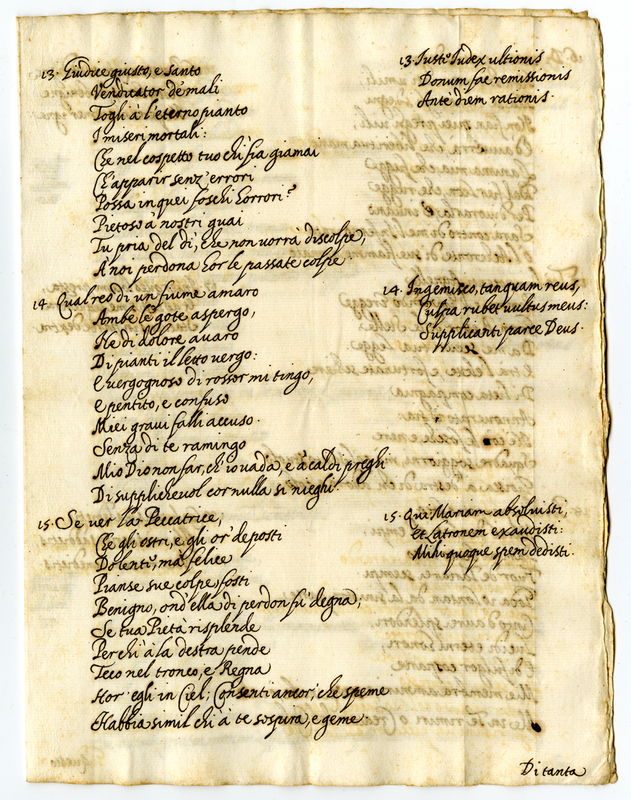 13. Giudice giusto, e santo
Vendicator de mali
Togli à l'eterno pianto
I miseri mortali:
Che nel cospetto tuo chi fia giamai
Ch'apparir senz'errori
Possa in quei foschi horrori?
Pietoso à nostri guai
Tu pria del dì, che non vorrà discolpe,
A' noi perdona hor le passate colpe
13. Iuste Iudex ultionis
Donum fac remissionis
Ante diem rationis.
14. Qual reo di un fiume amaro
Ambe le gote aspergo,
Ne di dolore avaro
Di pianti il letto vergo:
E vergognoso di rossor mi tingo,
e pentito, e confuso
Miei gravi falli accuso.
Senza di te ramingo
Mio Dio non far, ch'io vada, e à caldi preghi
Di supplichevol cor nulla si nieghi.
14. Ingemisco, tanquam reus,
Culpa rubet vultus meus:
Supplicanti parce Deus.
15. Se ver la Peccatrice,
Che gli ostri, e gli or' deposti
Dolente, ma felice
Pianse sue colpe, fosti
Benigno, ond'ella di perdon fù degna;
Se tua Pietà risplende
Perchi à la destra pende
Teco nel tronco, e Regna
Hor' egli in Ciel; Consenti ancor, che speme
Habbia simil chi à te sospira, e geme.
15. Qui Mariam absolvisti,
et Latronem exaudisti:
Mihi quoque spem dedisti.
Di tanta